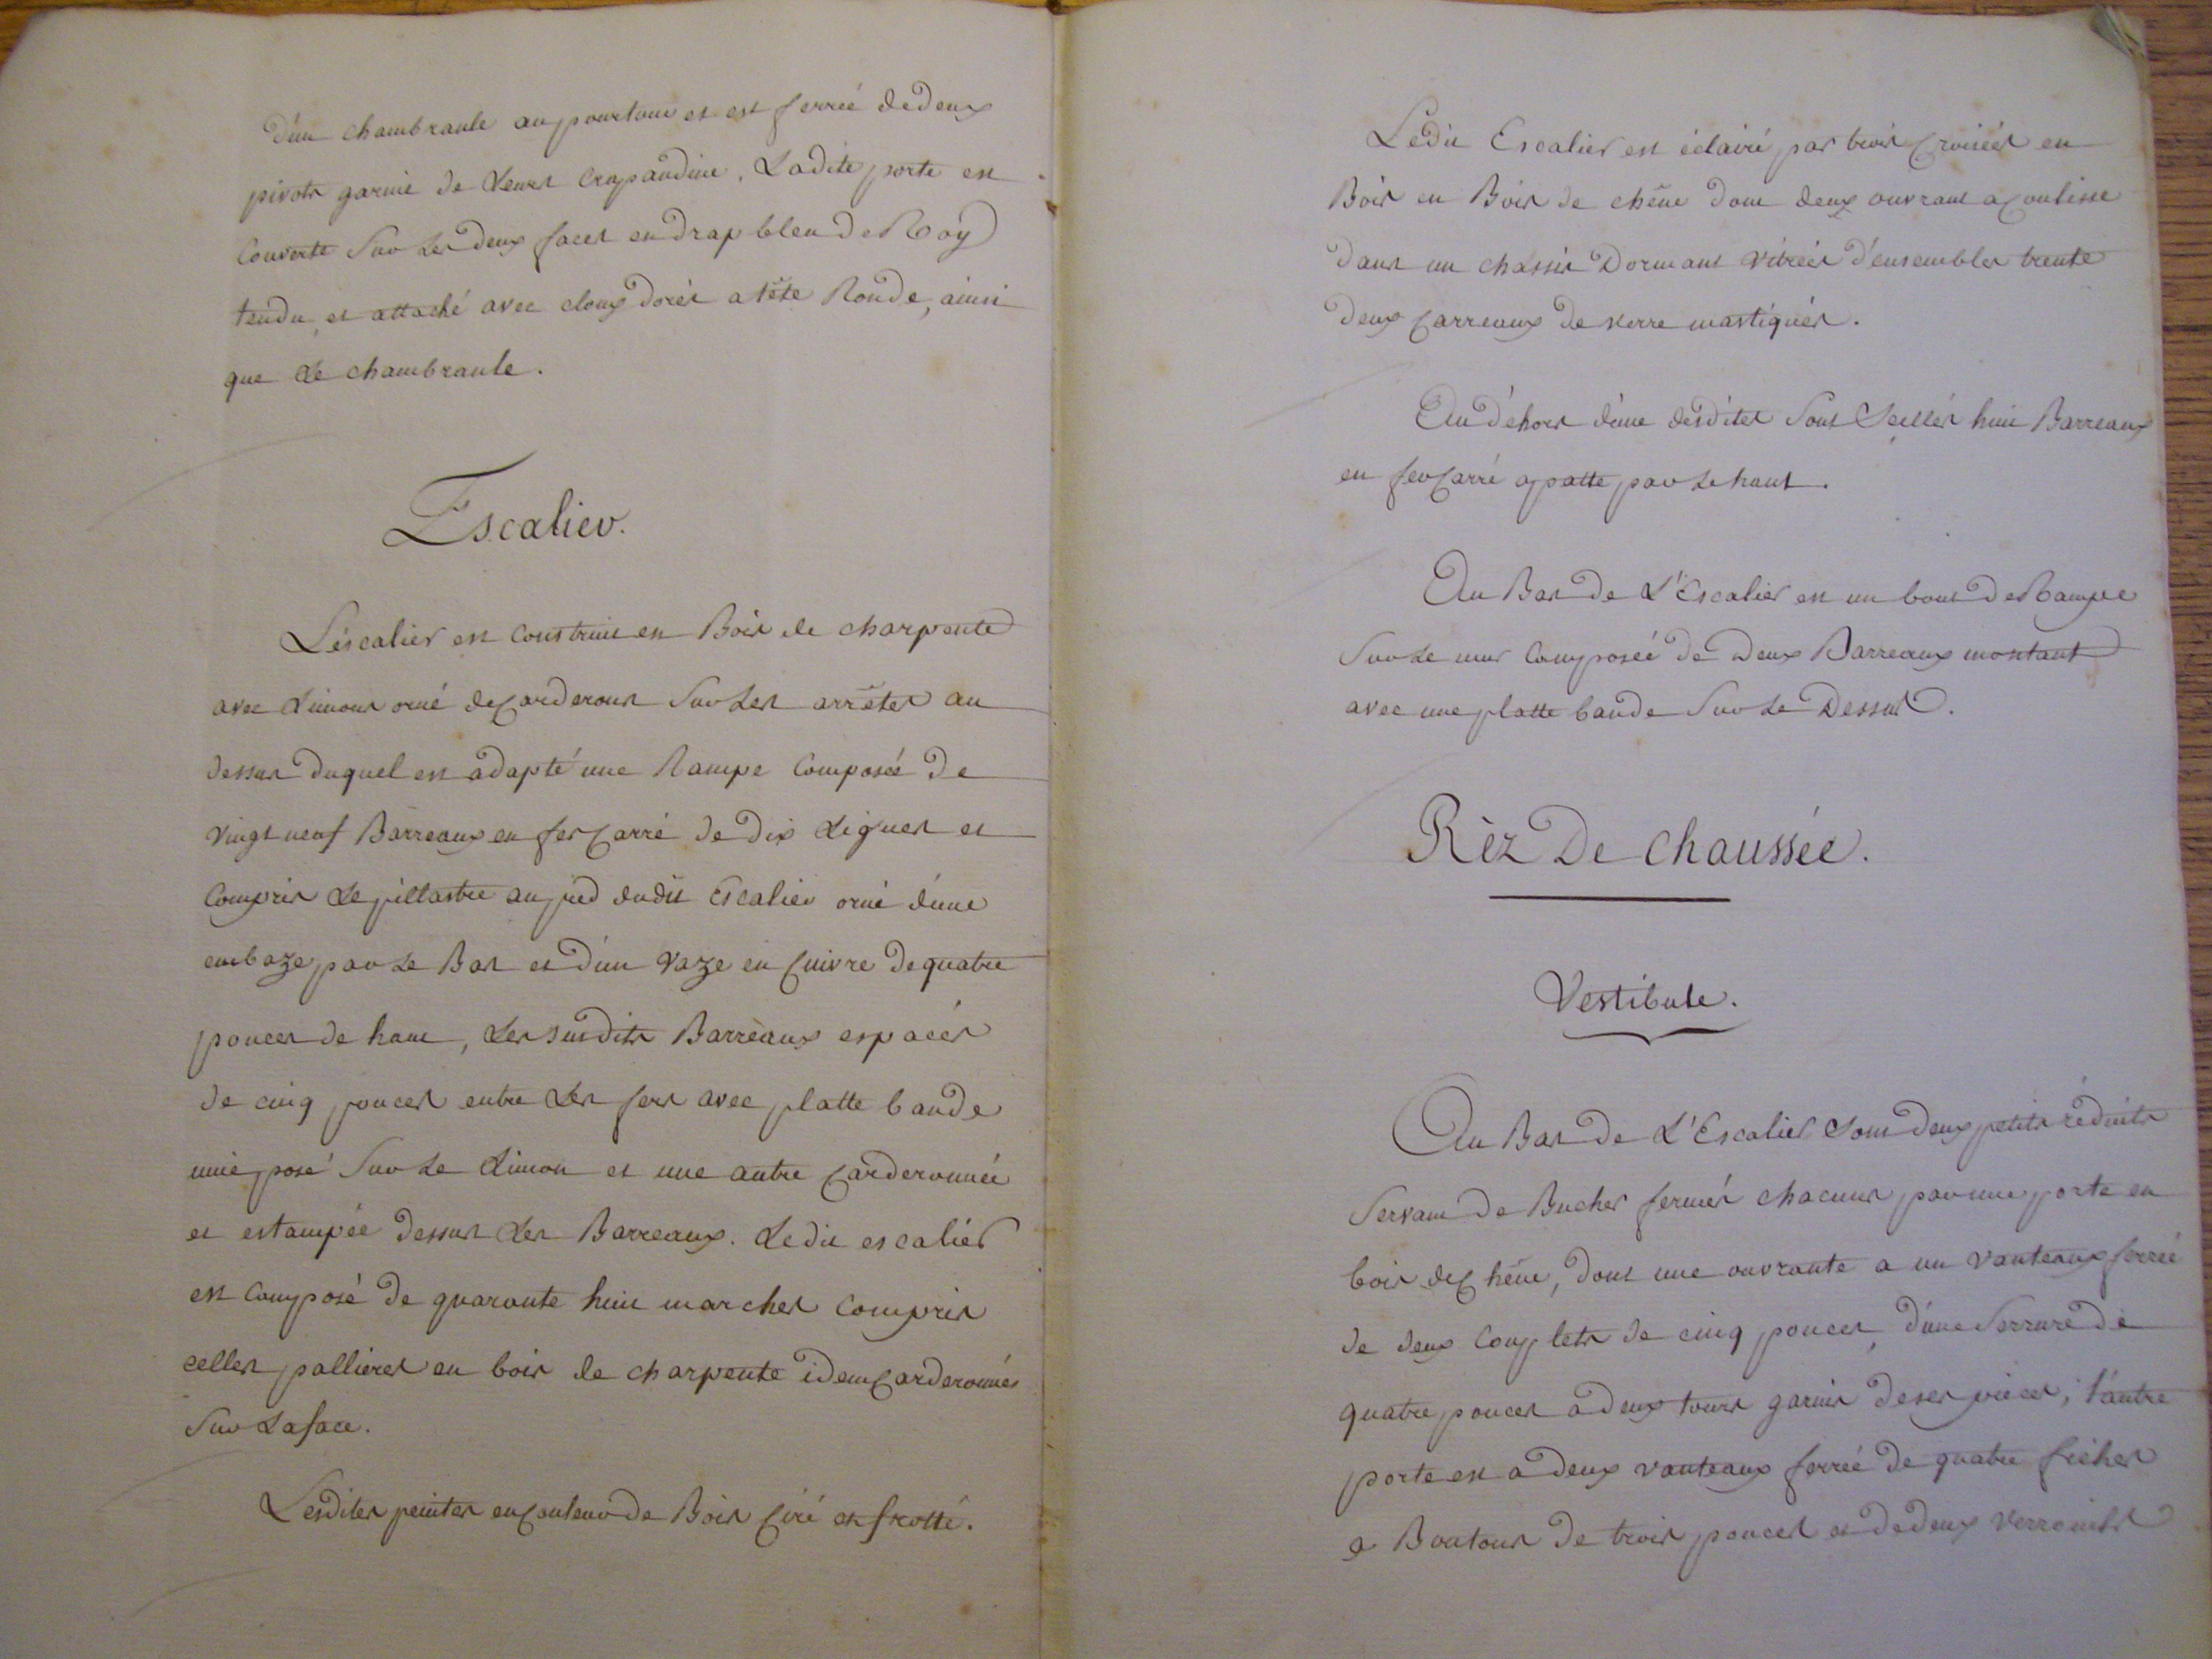 d'un chambranle au pourtour et est ferrée de deux
pivots garnie de leurs Crapaudine. Ladite porte est
Couverte Sur Les deux faces en drap bleu de Roy
tendu, et attaché avec cloux dorés a tête Ronde, ainsi
que le chambranle.
Escalier.
L'éscalier est Construit en Bois de charpente
avec Limons orné de Carderons Sur Les arrêtes au
dessus duquel est adapté une Rampe Composée de
vingt neuf Barreaux en fer Carré de dix Lignes et
Compris Le pillastre au pied dudit Escalier orné d'une
embaze par Le Bas et d'un Vaze en Cuivre de quatre
pouces de haut, Les susdits Barrèaux espacés
de cinq pouces entre Les fers avec platte bande
unie posé Sur Le Limon et une autre Carderonnée
et estampée dessus Les Barreaux. Ledit escaliér
est Composé de quarante huit marches Compris
celles pallieres en bois de charpente idem Carderonnés
Sur La face.
Lesdites peintes en Couleur de Bois Ciré et frotté.
Ledit Escalier est éclairé par trois Croisées en
Bois en Bois de chêne dont deux ouvrant a Coulisse
dans un chassis Dormant vitrées d'énsembles trente
deux Carreaux de verre mastiqués.
Au déhors d'une desdites Sont Scellés huit Barreaux
en fer Carré a patte par Le haut.
Au Bas de L'Escalier est un bout de Rampe
Sur Le mur Composéé de Deux Barreaux montant
avec une platte bande Sur Le Dessus.
Rèz De Chaussée.
Vestibule.
Au Bas de L'Escalier Sont deux petits réduits
Servant de Bucher fermés chacuns par une porte en
bois de Chêne, dont une ouvrante a un Vanteaux ferréé
de deux Couplets de cinq pouces, d'une Serrure de
quatre pouces a deux tours garnis de ses pieces; l'autre
porte est a deux vanteaux ferréé de quatre fiches
a Boutons de trois pouces et de deux Verrouilles